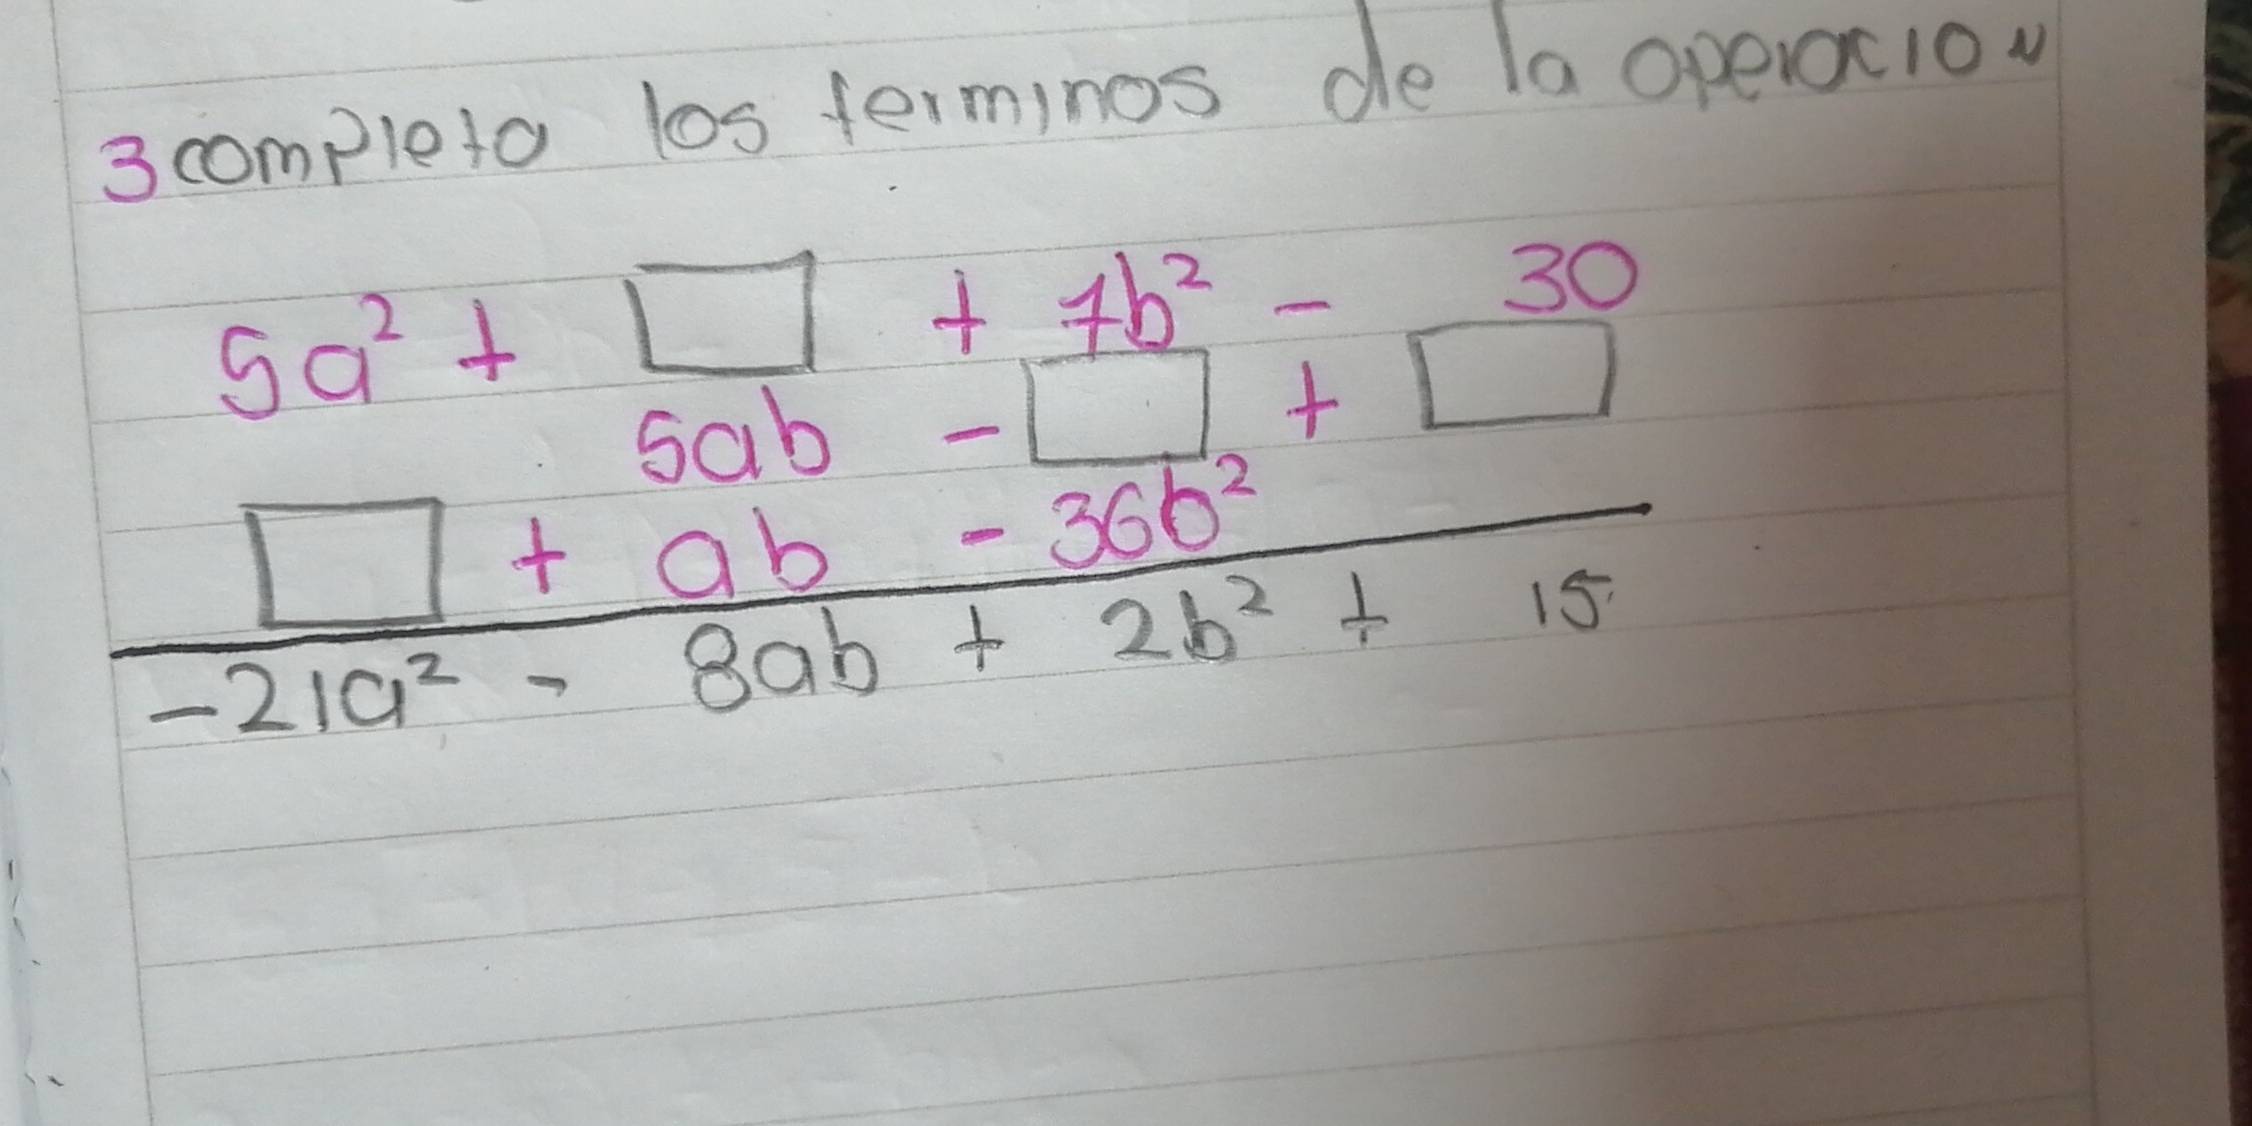 3 completa los terminos de la operacion
5a² + □ + 7b² - 30
5ab - □ + □
□ + ab - 36b²
-21a² - 8ab + 2b² + 15